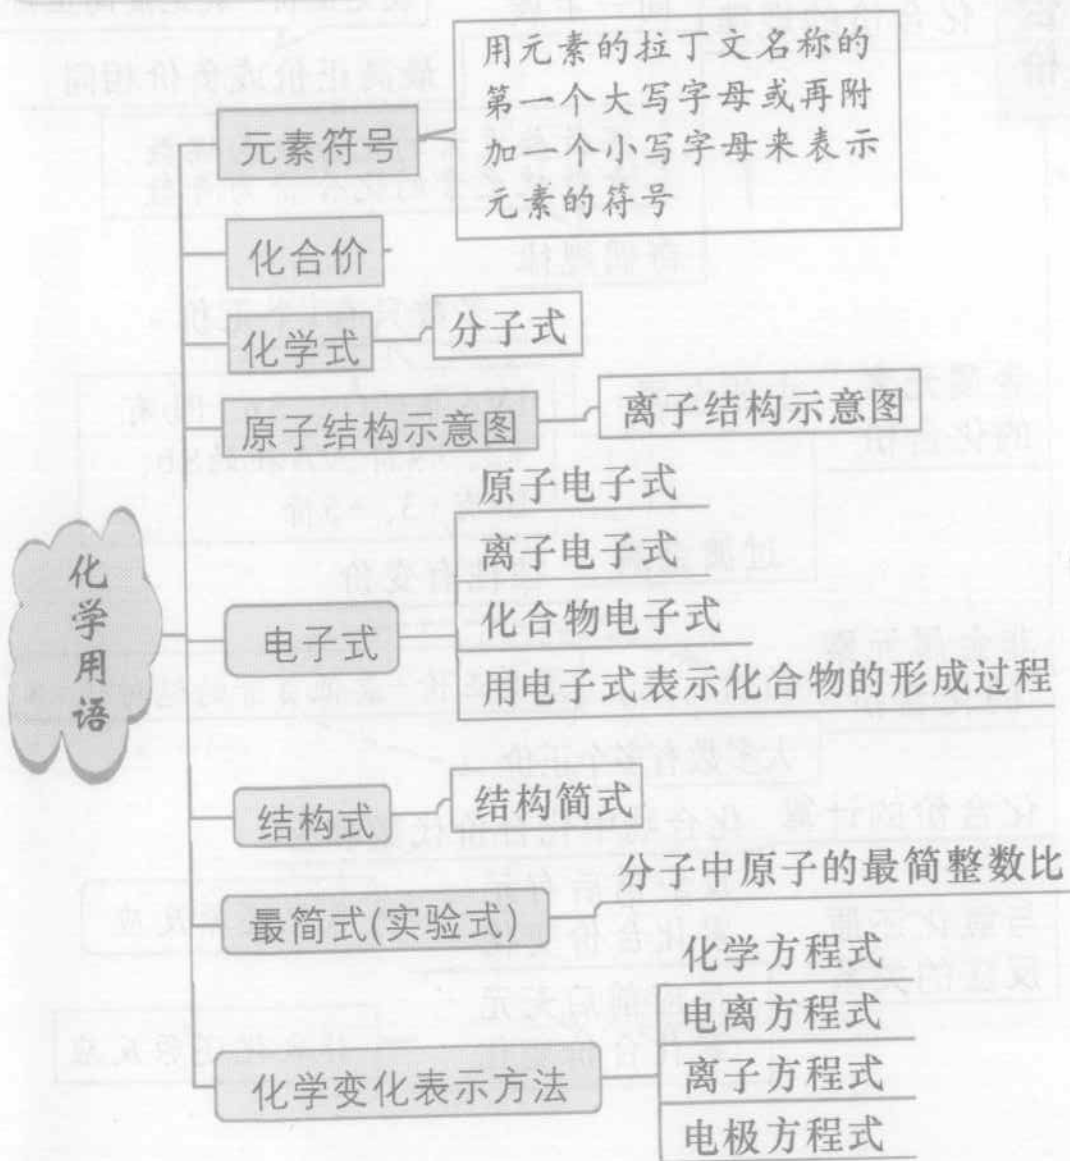 用元素的拉丁文名称的
第一个大写字母或再附
加一个小写字母来表示
元素的符号
元素符号
化合价
化学式
分子式
原子结构示意图
离子结构示意图
化
学
用
语
电子式
原子电子式
离子电子式
化合物电子式
用电子式表示化合物的形成过程
结构式
结构简式
最简式(实验式)
分子中原子的最简整数比
化学变化表示方法
化学方程式
电离方程式
离子方程式
电极方程式